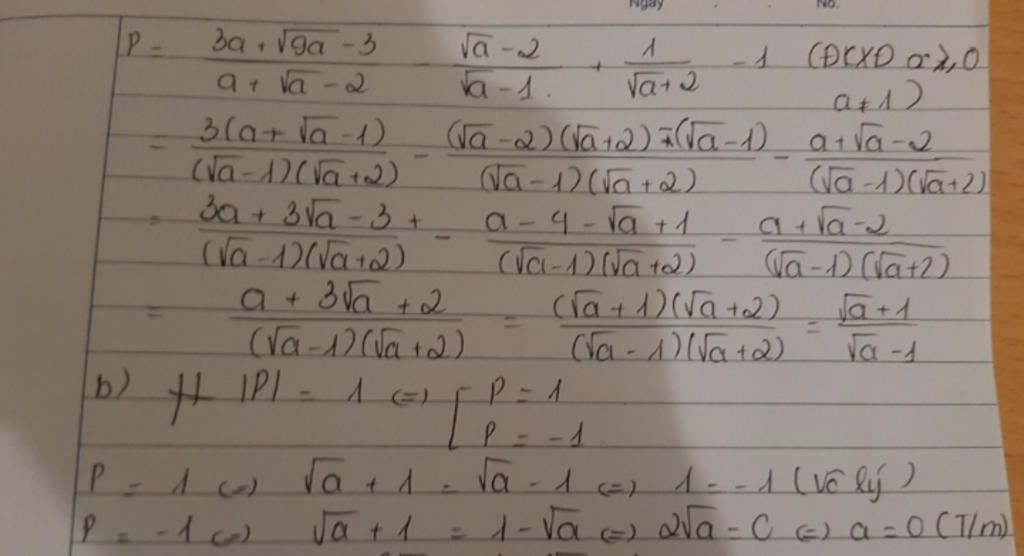 Ngày No.
P = (3a + √9a - 3)/(a + √a - 2) - (√a - 2)/(√a - 1) + 1/(√a + 2) - 1 (ĐKXĐ a ≥ 0
a ≠ 1)
= 3(a + √a - 1)/((√a - 1)(√a + 2)) - ((√a - 2)(√a + 2) - (√a - 1))/((√a - 1)(√a + 2)) - (a + √a - 2)/((√a - 1)(√a + 2))
= (3a + 3√a - 3 +)/((√a - 1)(√a + 2)) - (a - 4 - √a + 1)/((√a - 1)(√a + 2)) - (a + √a - 2)/((√a - 1)(√a + 2))
= (a + 3√a + 2)/((√a - 1)(√a + 2)) = ((√a + 1)(√a + 2))/((√a - 1)(√a + 2)) = (√a + 1)/(√a - 1)
b) |P| = 1 <=> [ P = 1
P = -1
P = 1 <=> √a + 1 = √a - 1 <=> 1 = -1 (vô lý)
P = -1 <=> √a + 1 = 1 - √a <=> 2√a = 0 <=> a = 0 (T/m)